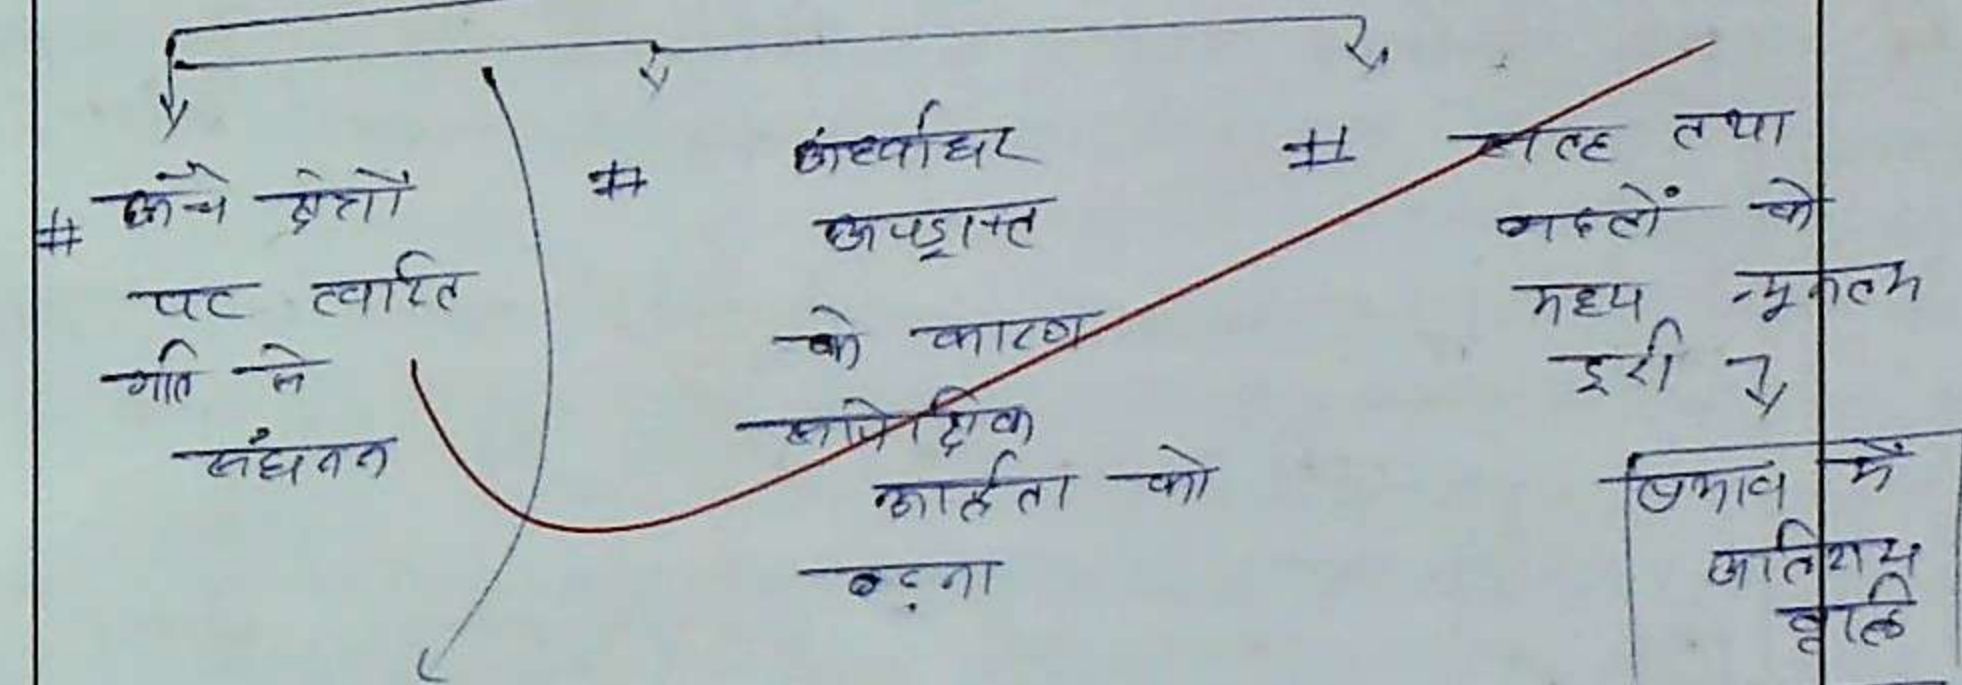 # ऊँचे क्षेत्रों
पर त्वरित
गति से
संघनन
# ऊर्ध्वाधर
अपड्राफ्ट
के कारण
सापेक्षिक
आर्द्रता को
बढ़ना
# सतह तथा
बादलों के
मध्य न्यूनतम
दूरी
प्रभाव में
अतिशय
वृद्धि